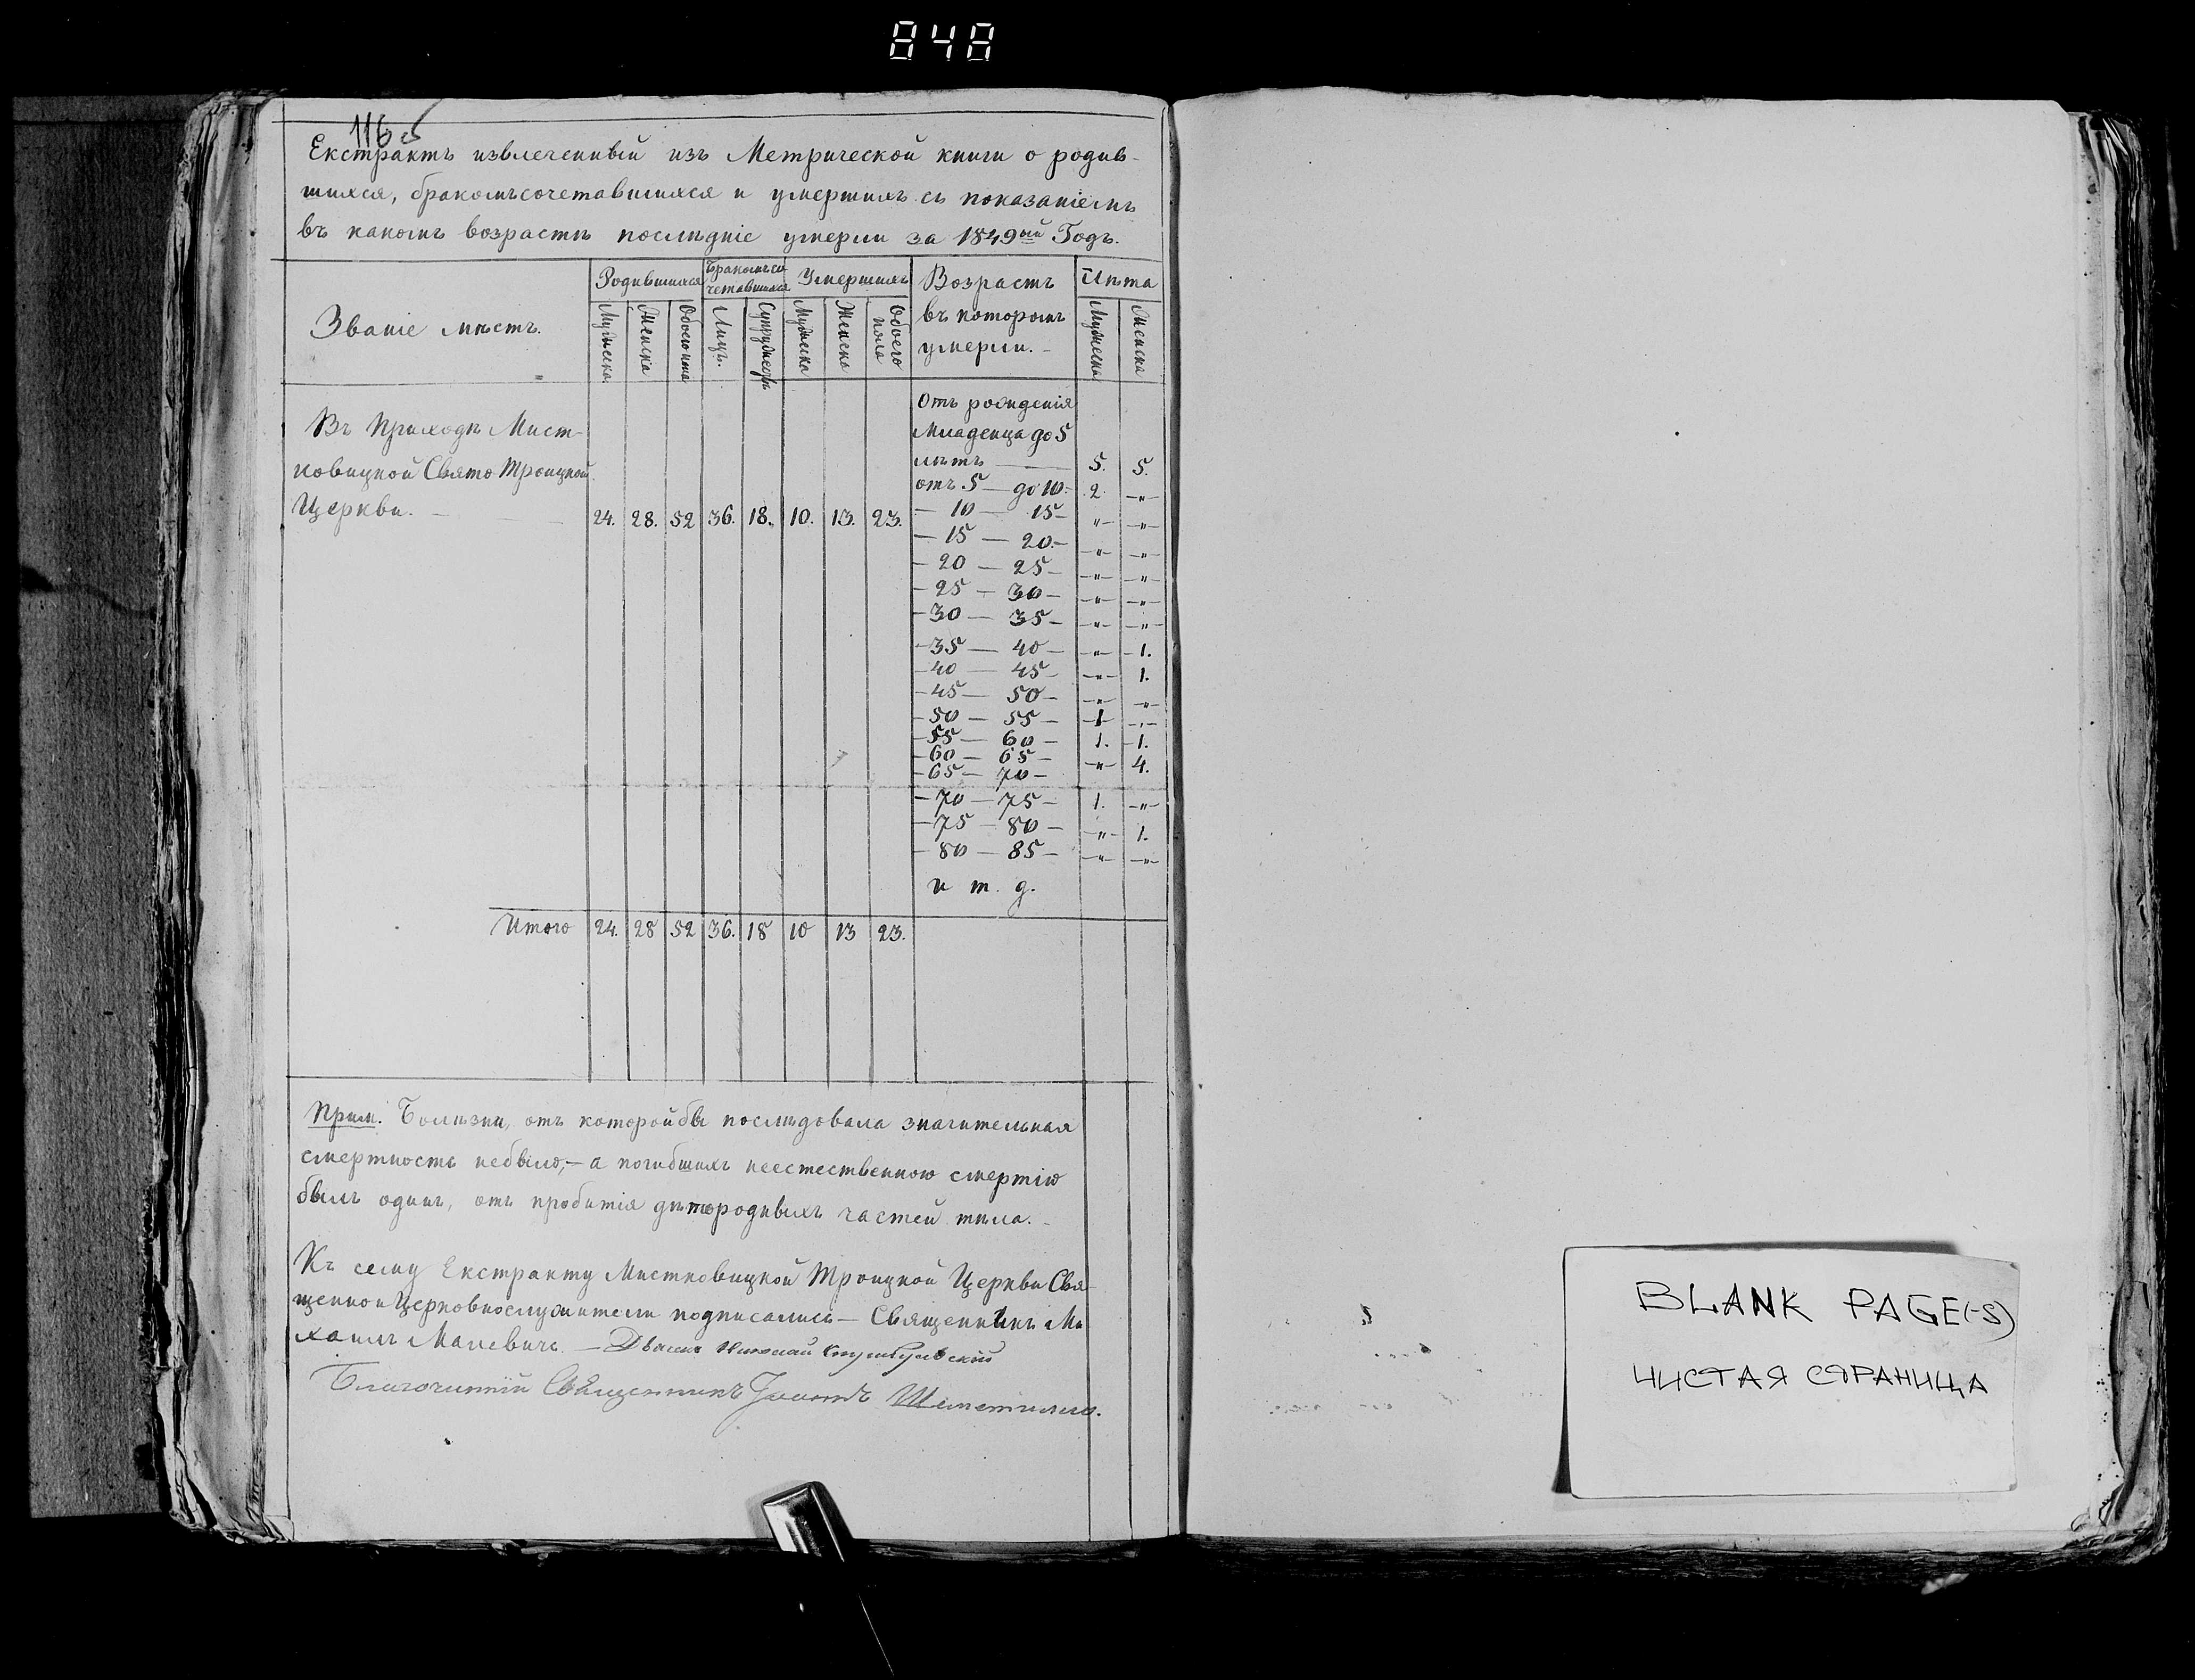 848
116 об
Екстрактъ извлеченный изъ Метрической книги о родив-
шихся, бракомъ сочетавшихся и умершихъ съ показаніемъ
въ какомъ возрастѣ послѣдніе умерли за 1849ый Годъ.
Званіе мѣстъ.
Родившихся
Бракомъ со
четавшихся
Умершихъ
Возрастъ
въ которомъ
умерли.
Лѣта
Мужеска
Женска
Обоего пола
Лицъ.
Супружествъ
Мужеска
Женска
Обоего
пола
Мужеска
Женска
Въ Приходѣ Мист-
ковицкой Свято Троицкой
Церкви.
24. 28. 52 36. 18. 10. 13. 23.
Отъ рожденія
Младенца до 5
лѣтъ — 5. 5.
отъ 5 — до 10. 2 —"—
— 10 — 15— " —"—
— 15 — 20.— —"— —"—
— 20 — 25— —"— —"—
— 25 — 30— —"— —"—
— 30 — 35— —"— —"—
— 35 — 40— —"— 1.
— 40 — 45— —"— 1.
— 45 — 50— —"— "
— 50 — 55— 1 —"—
— 55 — 60— 1. 1.
— 60 — 65—
— 65 — 70— —"— 4.
— 70 — 75— 1. —"—
— 75 — 80— —"— 1.
— 80 — 85— —"— —"—
и т. д.
Итого 24. 28 52 36. 18 10 13 23.
Прим. Болѣзни, отъ которой бы послѣдовала значительная
смертность небыло,— а погибшихъ неестественною смертію
былъ одинъ, отъ пробитія дѣтородныхъ частей тѣла.—
Къ сему Екстракту Мистковицкой Троицкой Церкви Свя-
щенно и Церковнослужители подписались — Священникъ Ми
хаилъ Малевичъ. — Дьячекъ Николай
Благочинный Священникъ
BLANK PAGE(-S)
ЧИСТАЯ СТРАНИЦА